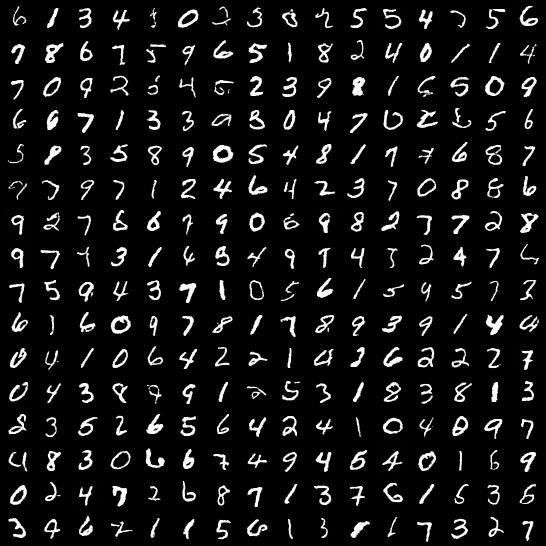 6 1 3 4 1 0 2 3 0 2 5 5 4 7 5 6
7 8 6 7 5 9 6 5 1 8 2 4 0 1 1 4
7 0 9 2 5 4 5 2 3 9 8 1 6 5 0 9
6 6 7 1 3 3 0 3 0 4 7 0 2 6 5 6
5 8 3 5 8 9 0 5 4 8 1 7 7 6 8 7
7 7 9 7 1 2 4 6 4 2 3 7 0 8 8 6
9 2 7 8 6 7 9 0 6 9 8 2 7 7 2 8
9 7 7 3 1 6 5 4 9 9 4 3 2 4 7 6
7 5 9 4 3 7 1 0 5 6 1 5 9 5 7 3
6 1 6 0 9 7 8 1 7 8 9 3 9 1 4 4
0 4 1 0 6 4 2 2 1 4 3 6 2 2 2 7
0 4 3 8 9 9 1 2 5 3 1 8 3 8 1 3
8 3 5 2 6 5 6 4 2 4 1 0 4 0 9 7
4 8 3 0 6 6 7 4 9 4 5 4 0 1 6 9
0 2 4 7 2 6 8 7 1 3 7 6 1 5 3 5
3 4 6 7 1 1 5 6 1 3 8 1 7 3 2 7